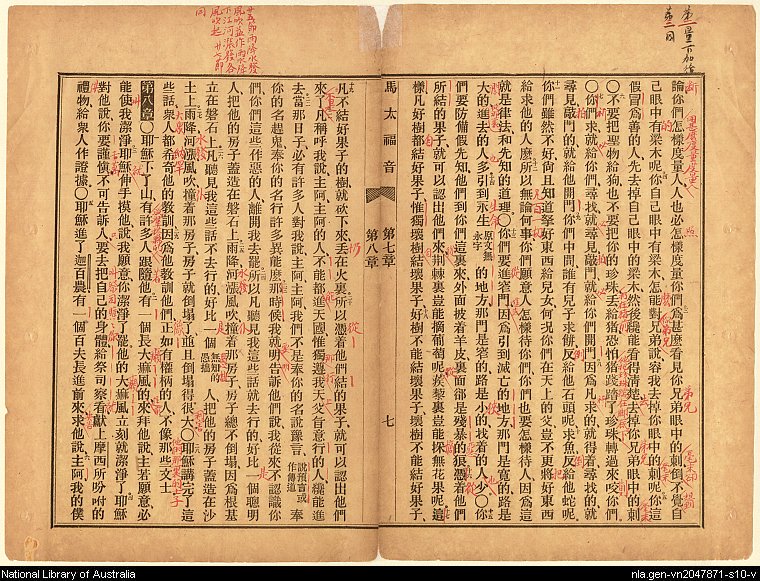 論你們怎樣度量人人也必怎樣度量你們為甚麼看見你兄弟眼中的刺倒不覺自
己眼中有梁木呢你自己眼中有梁木怎能對兄弟說容我去掉你眼中的刺呢你這
假冒為善的人先去掉自己眼中的梁木然後纔能看得清楚去掉你兄弟眼中的刺
〇不要把聖物給狗也不要把你的珍珠丟給猪恐怕猪踐踏了珍珠轉過來咬你們
〇你們求就給你們尋找就尋見敲門就給你們開門因為凡求的就得着尋找的就
尋見敲門的就給他開門你們中間誰有兒子求餅反給他石頭呢求魚反給他蛇呢
你們雖然不好尚且知道拏好東西給兒女何況你們在天上的父豈不更將好東西
給求他的人麼所以無論何事你們願意人怎樣待你們你們也要怎樣待人因為這
就是律法和先知的道理〇你們要進窄門因為引到滅亡的地方那門是寬的路是
大的進去的人多引到永生原文無永字的地方那門是窄的路是小的找着的人少〇你
們要防備假先知他們到你們這裏來外面披着羊皮裏面卻是殘暴的狼憑着他們
所結的果子就可以認出他們來荆棘裏豈能摘葡萄呢蒺藜裏豈能採無花果呢這
樣凡好樹都結好果子惟獨壞樹結壞果子好樹不能結壞果子壞樹不能結好果子
馬太福音
第七章
第八章
七
凡不結好果子的樹就砍下來丟在火裏所以憑着他們結的果子就可以認出他們
來了凡稱呼我說主阿主阿的人不能都進天國惟獨遵我天父旨意行的人纔能進
去當那日子必有許多人對我說主阿主阿我們不是奉你的名說豫言說預言或作傳道奉
你的名趕鬼奉你的名行許多異能麼那時候我就明告訴他們說我從來不認識你
們你們這些作惡的人離開我去罷所以凡聽見我這些話就去行的好比一個聰明
人把他的房子蓋造在磐石上雨降河漲風吹撞着那房子房子總不倒塌因為根基
立在磐石上凡聽見我這些話不去行的好比一個無知的愚拙人把他的房子蓋造在沙
土上雨降河漲風吹撞着那房子房子就倒塌了並且倒塌得很大〇耶穌講完了這
些話衆人都希奇他的教訓因為他教訓他們正如有權柄的人不像那些文士
第八章〇耶穌下了山有許多人跟隨他有一個長大痲風的來拜他說主若願意必
能使我潔淨耶穌伸手摸他說我願意你潔淨了罷他的大痲風立刻就潔淨了耶穌
對他說你要謹慎不可告訴人要去把自己的身體給祭司察看獻上摩西所吩咐的
禮物給衆人作證據〇耶穌進了迦百農有一個百夫長進前來求他說主阿我的僕
National Library of Australia
nla.gen-vn2047871-s10-v